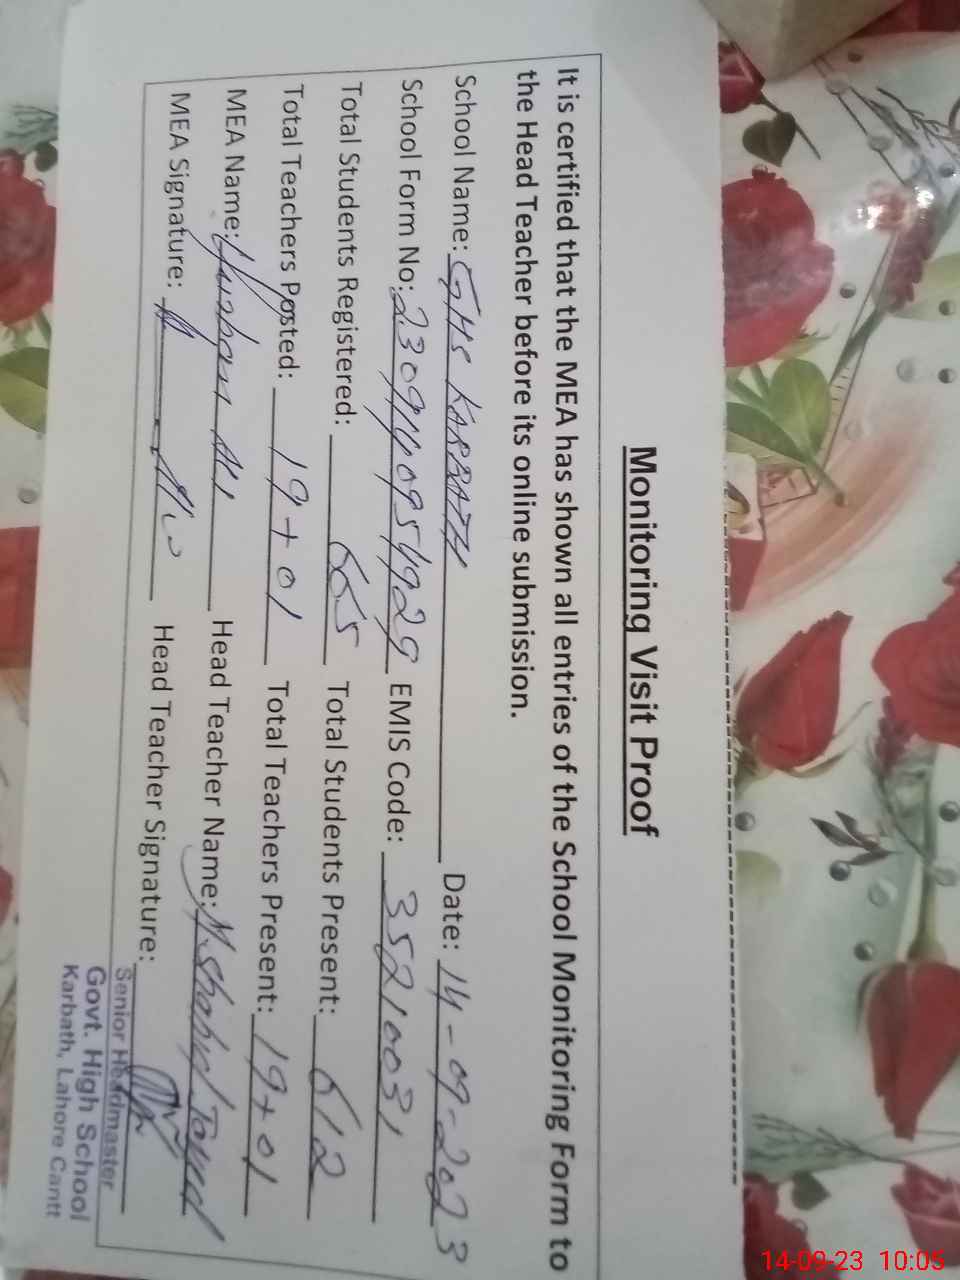 Monitoring Visit Proof
It is certified that the MEA has shown all entries of the School Monitoring Form to
the Head Teacher before its online submission.
School Name: GHS KARBATH Date: 14-09-2023
School Form No: 2309140954929 EMIS Code: 35210031
Total Students Registered: 665 Total Students Present: 612
Total Teachers Posted: 19+01 Total Teachers Present: 19+01
MEA Name: Ali Head Teacher Name: M.
MEA Signature: Head Teacher Signature:
Senior Headmaster
Govt. High School
Karbath, Lahore Cantt
14-09-23 10:05